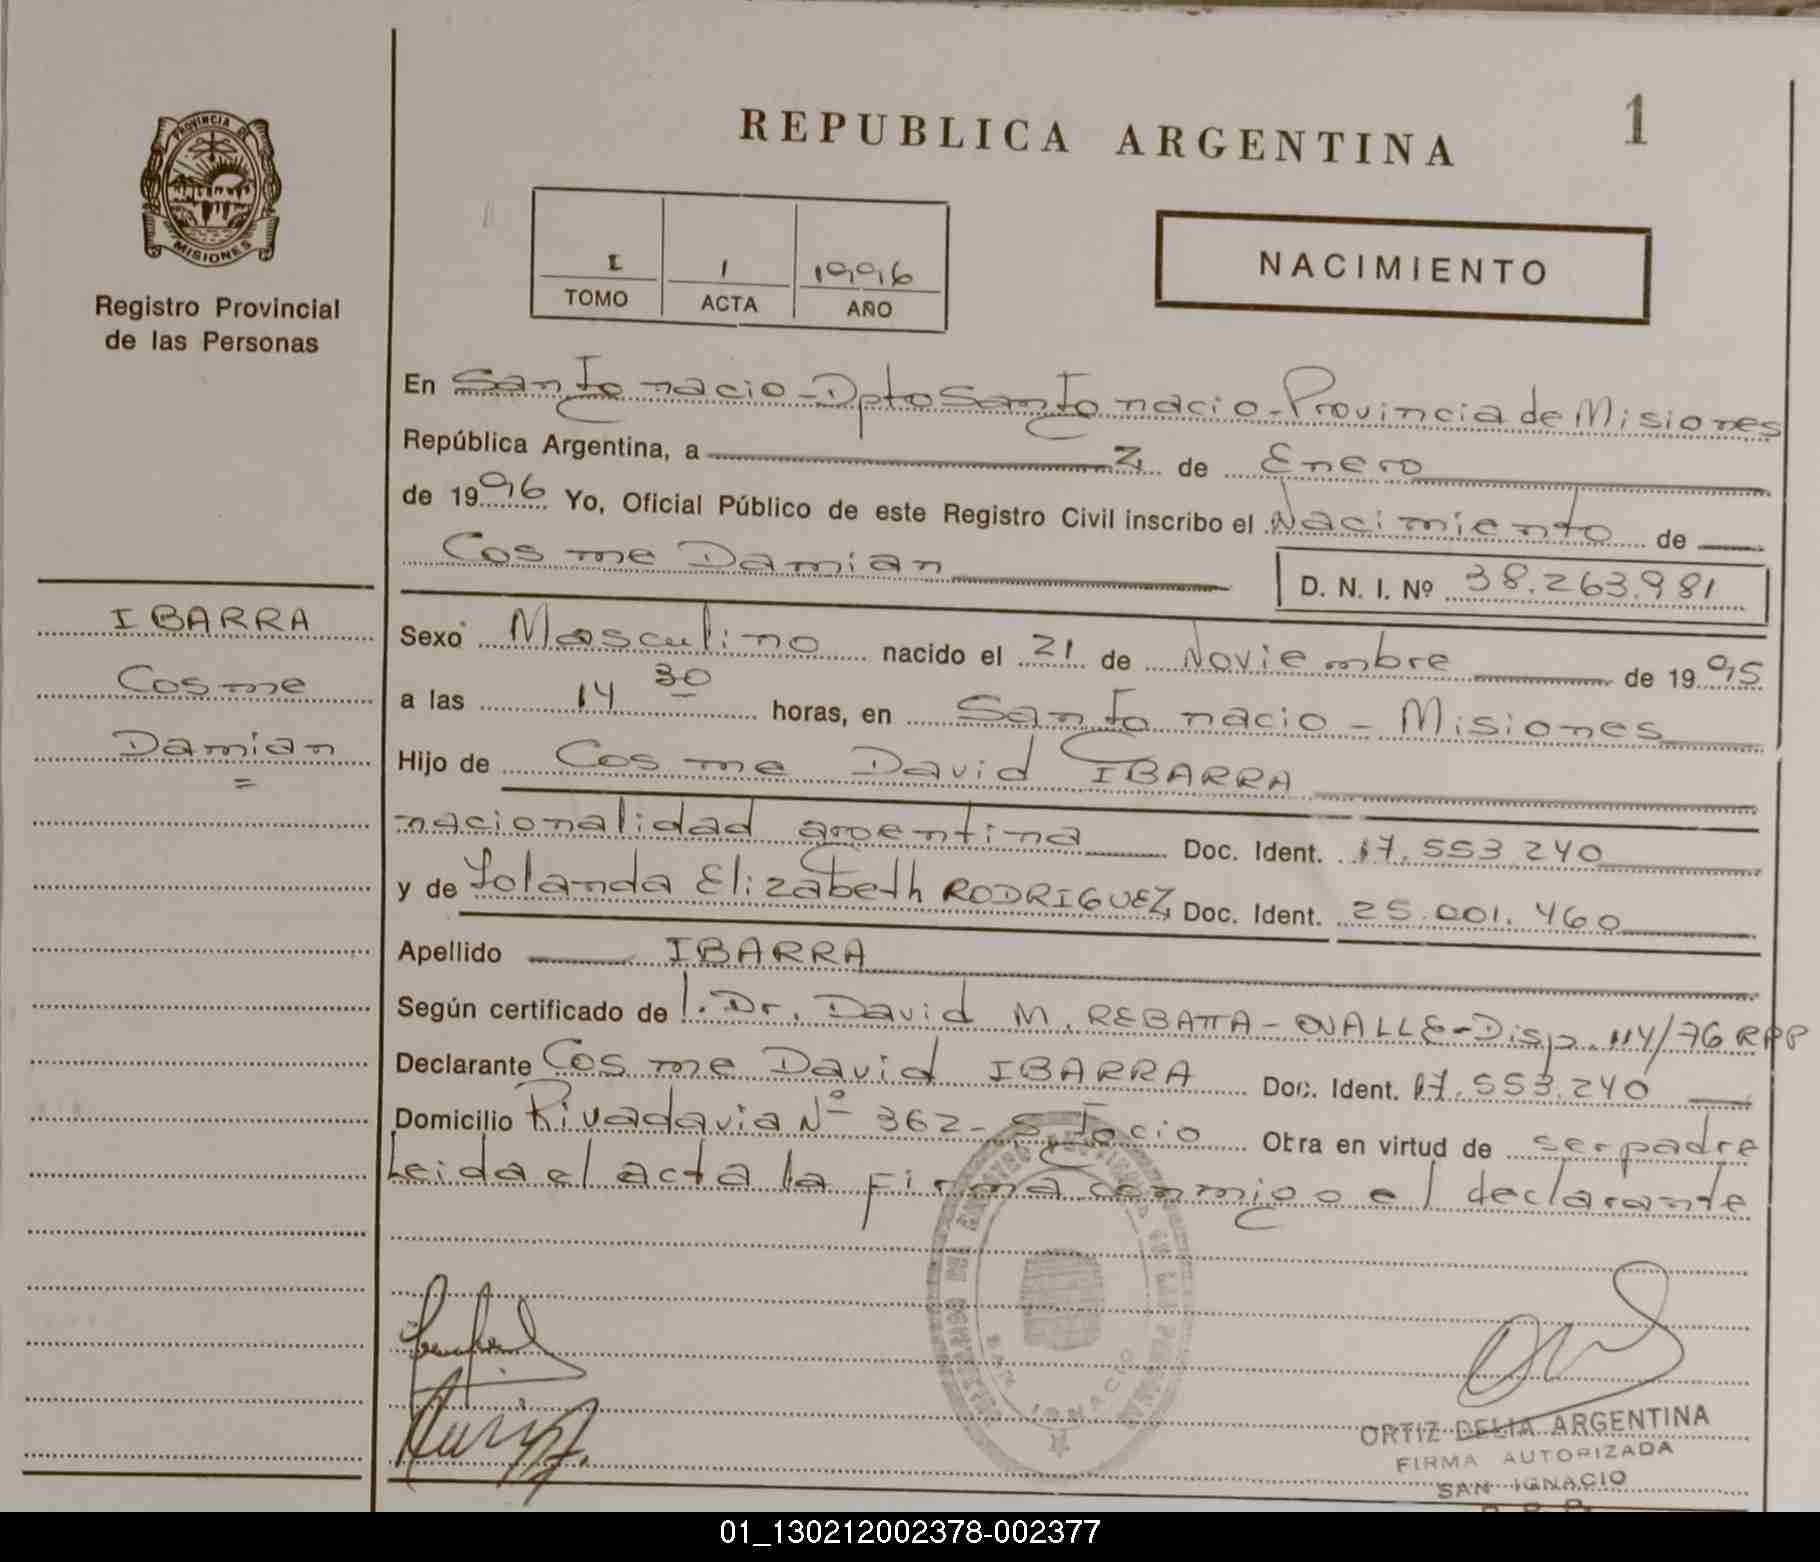 REPUBLICA ARGENTINA
1
PROVINCIA DE
MISIONES
Registro Provincial
de las Personas
I
TOMO
1
ACTA
1996
AÑO
NACIMIENTO
En San Ignacio - Dpto San Ignacio - Provincia de Misiones
República Argentina, a 2 de Enero
de 1996 Yo, Oficial Público de este Registro Civil inscribo el Nacimiento de
Cosme Damian
D. N. I. Nº 38.263.981
IBARRA
Cosme
Damian
=
Sexo Masculino nacido el 21 de Noviembre de 1995
a las 14 30 horas, en San Ignacio - Misiones
Hijo de Cosme David IBARRA
nacionalidad argentina Doc. Ident. 17.553.240
y de Yolanda Elizabeth RODRIGUEZ Doc. Ident. 25.001.460
Apellido IBARRA
Según certificado de l. Dr. David M. REBATTA-OVALLE-Disp. 114/76 RPP
Declarante Cosme David IBARRA Doc. Ident. 17.553.240
Domicilio Rivadavia Nº 362 - S. Igcio Obra en virtud de ser padre
Leida el acta la firma conmigo el declarante
IGNACIO
ORTIZ DELIA ARGENTINA
FIRMA AUTORIZADA
SAN IGNACIO
01_130212002378-002377